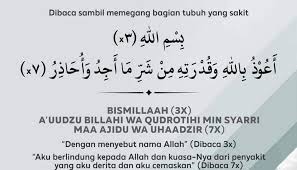 Dibaca sambil memegang bagian tubuh yang sakit
بِسْمِ اللهِ (٣×)
أَعُوْذُ بِاللهِ وَقُدْرَتِهِ مِنْ شَرِّ مَا أَجِدُ وَأُحَاذِرُ (٧×)
BISMILLAAH (3X)
A'UUDZU BILLAHI WA QUDROTIHI MIN SYARRI
MAA AJIDU WA UHAADZIR (7X)
"Dengan menyebut nama Allah" (Dibaca 3x)
"Aku berlindung kepada Allah dan kuasa-Nya dari penyakit
yang aku derita dan aku cemaskan" (Dibaca 7x)